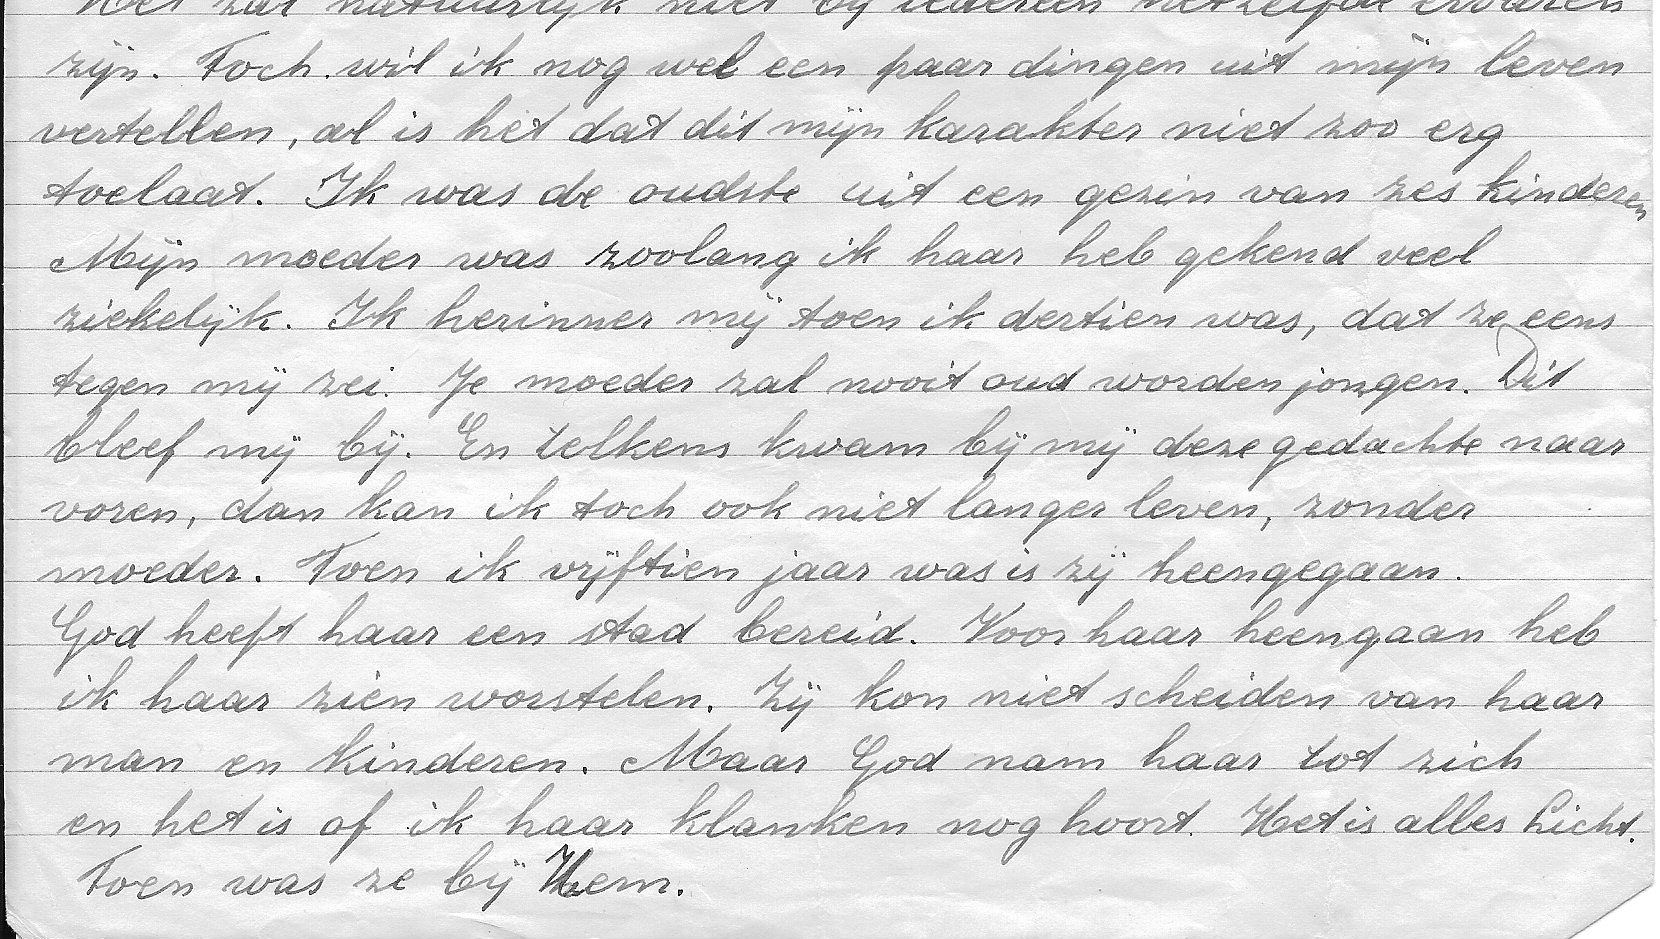 Het zal natuurlijk niet bij iedereen hetzelfde ervaren
zijn. Toch wil ik nog wel een paar dingen uit mijn leven
vertellen, al is het dat dit mijn karakter niet zoo erg
toelaat. Ik was de oudste uit een gezin van zes kinderen
Mijn moeder was zoolang ik haar heb gekend veel
ziekelijk. Ik herinner mij toen ik dertien was, dat ze eens
tegen mij zei. Je moeder zal nooit oud worden jongen. Dit
bleef mij bij. En telkens kwam bij mij deze gedachte naar
voren, dan kan ik toch ook niet langer leven, zonder
moeder. Toen ik vijftien jaar was is zij heengegaan.
God heeft haar een stad bereid. Voor haar heengaan heb
ik haar zien worstelen. Zij kon niet scheiden van haar
man en kinderen. Maar God nam haar tot zich
en het is of ik haar klanken nog hoort. Het is alles licht.
Toen was ze bij Hem.